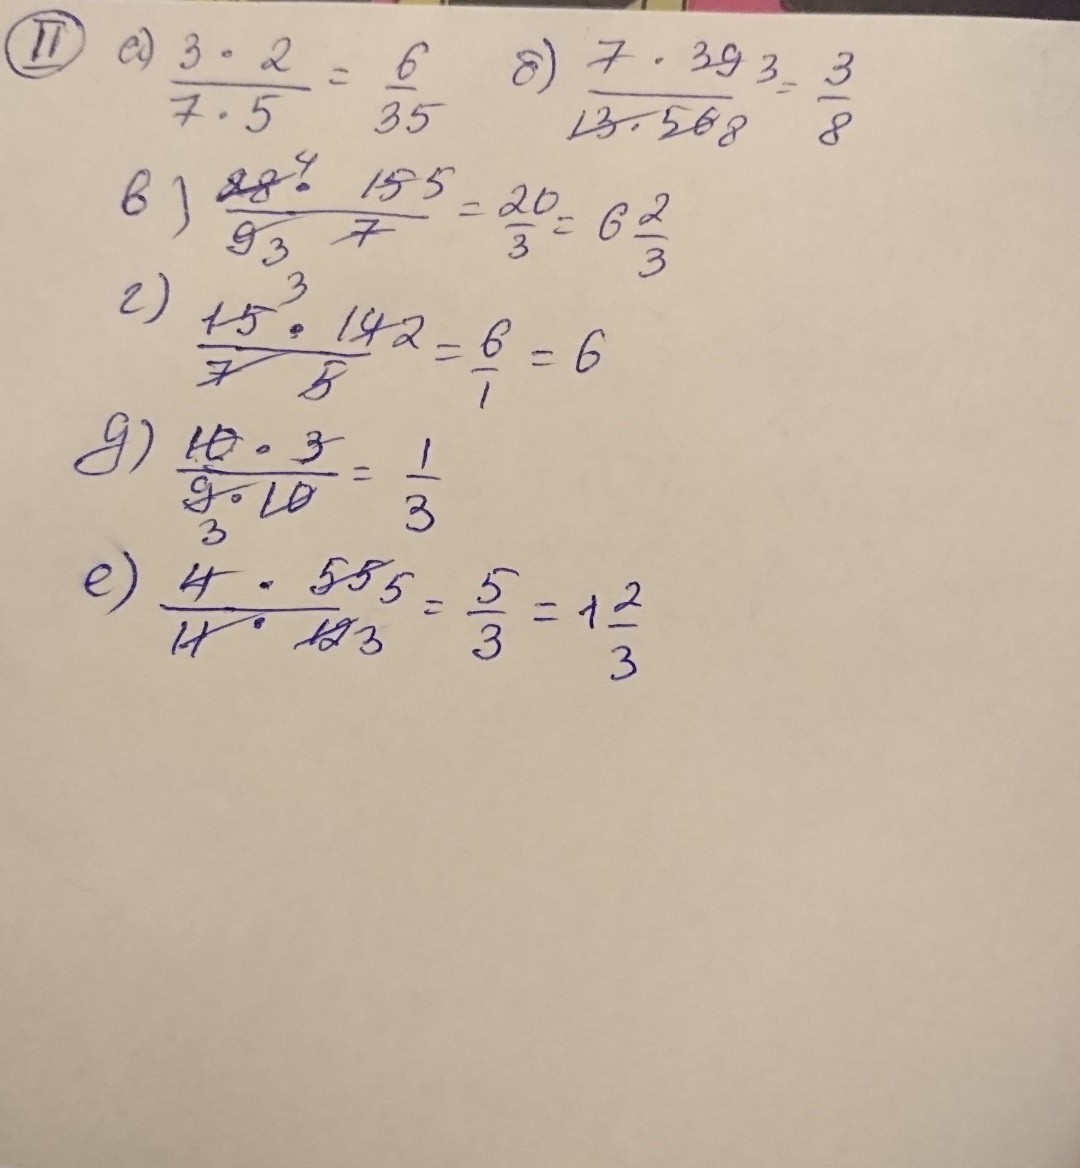 II а) 3 · 2 / 7 · 5 = 6/35 б) 7 · 39 3 / 13 · 56 8 = 3/8
в) 28 4 · 15 5 / 9 3 7 = 20/3 = 6 2/3
г) 15 3 · 14 2 / 7 5 = 6/1 = 6
д) 10 · 3 / 9 · 10 3 = 1/3
е) 4 · 55 5 / 11 · 12 3 = 5/3 = 1 2/3